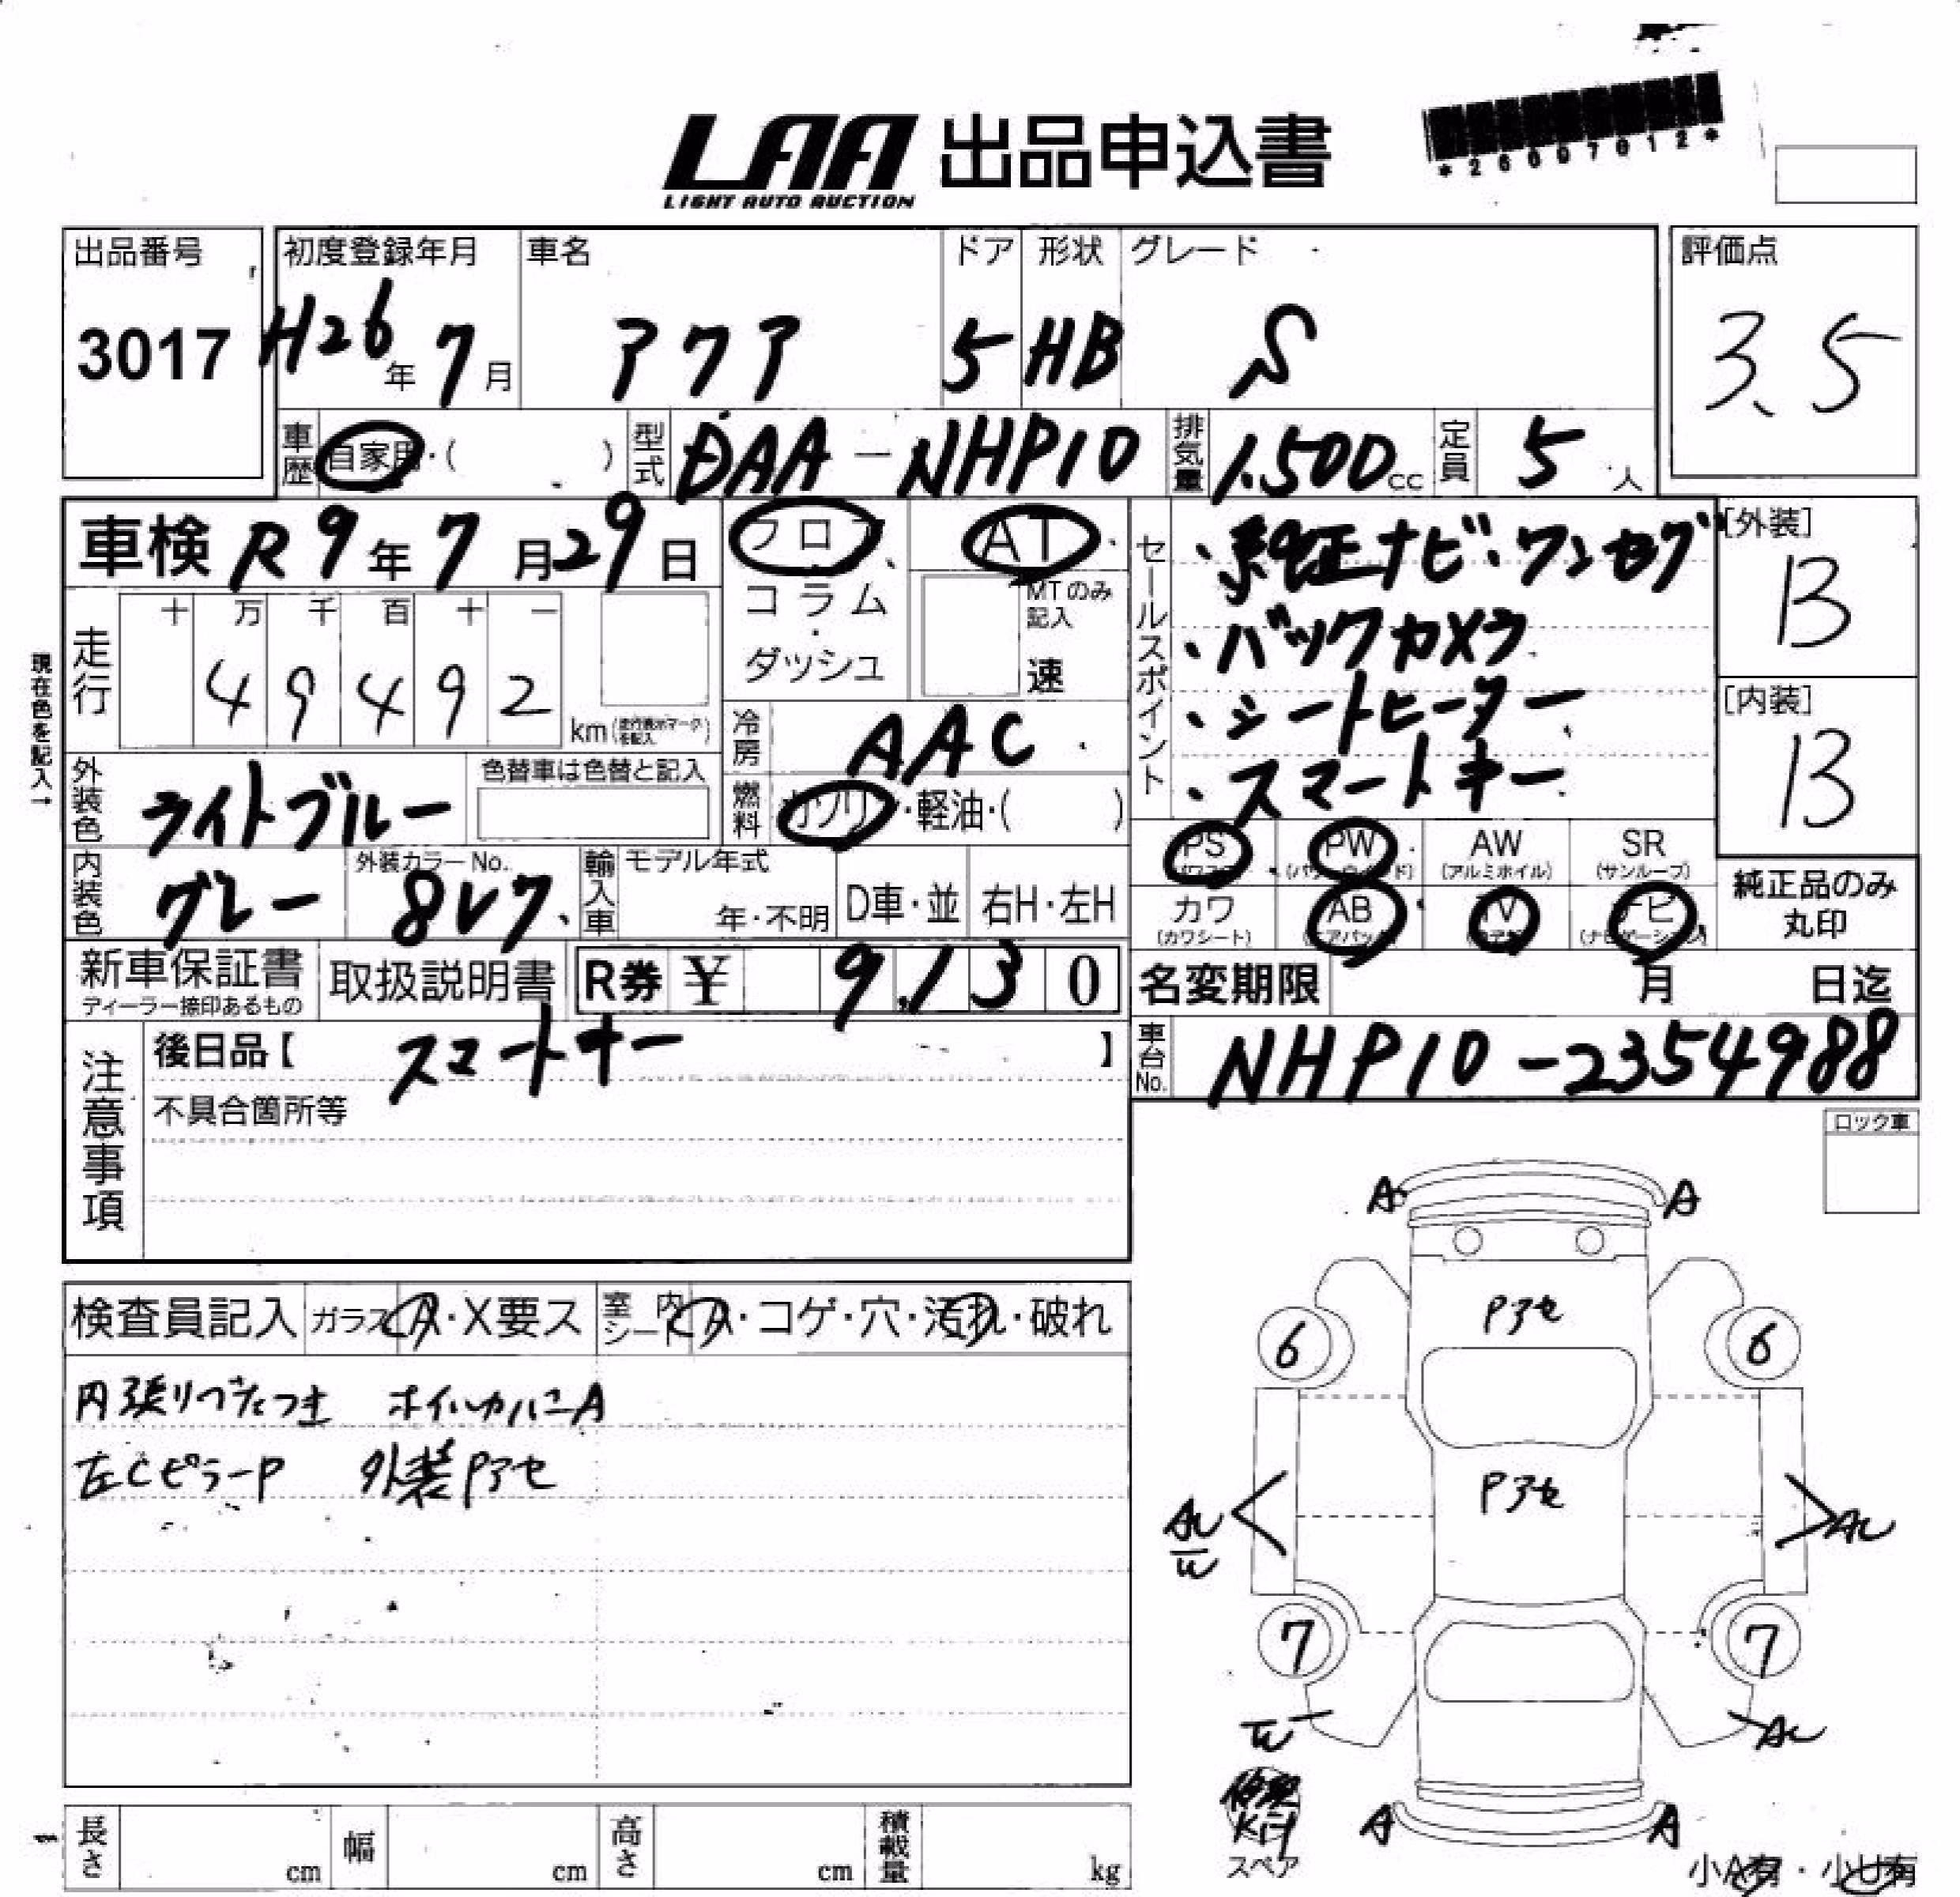 LAA 出品申込書
LIGHT AUTO AUCTION
*26007012*
出品番号
3017
初度登録年月
H26年 7月
車名
アクア
ドア
5
形状
HB
グレード
S
評価点
3.5
車歴
自家用・( )
型式
DAA-NHP10
排気量
1.500cc
定員
5人
車検 R9年7月29日
フロア
コラム・ダッシュ
AT
MTのみ記入
速
セールスポイント
・純正ナビ・ワンセグ
・バックカメラ
・シートヒーター
・スマートキー
[外装]
B
[内装]
B
現在色を記入→
走行
十 万 千 百 十 一
49492
km(走行表示マークを記入)
冷房
AAC
外装色
ライトブルー
色替車は色替と記入
燃料
ガソリン・軽油・( )
内装色
グレー
外装カラーNo.
8V7
輸入車
モデル年式
年・不明
D車・並
右H・左H
PS (パワステ)
PW (パワーウインド)
AW (アルミホイル)
SR (サンルーフ)
カワ (カワシート)
AB (エアバック)
TV
ナビ (ナビゲーション)
純正品のみ丸印
新車保証書
ディーラー捺印あるもの
取扱説明書
R券 ¥ 9,130
名変期限 月 日迄
注意事項
後日品【 スマートキー 】
不具合箇所等
車台No.
NHP10-2354988
ロック車
検査員記入
ガラス A・X要ス
室内シート A・コゲ・穴・汚れ・破れ
内張りプラキズ ホイルカバーA
左CピラーP 外装Pアセ
A A
Pアセ
6 6
Pアセ
AU
W
AU
7 7
W
AU
A A
スペア
小A有・小U有
長さ cm
幅 cm
高さ cm
積載量 kg